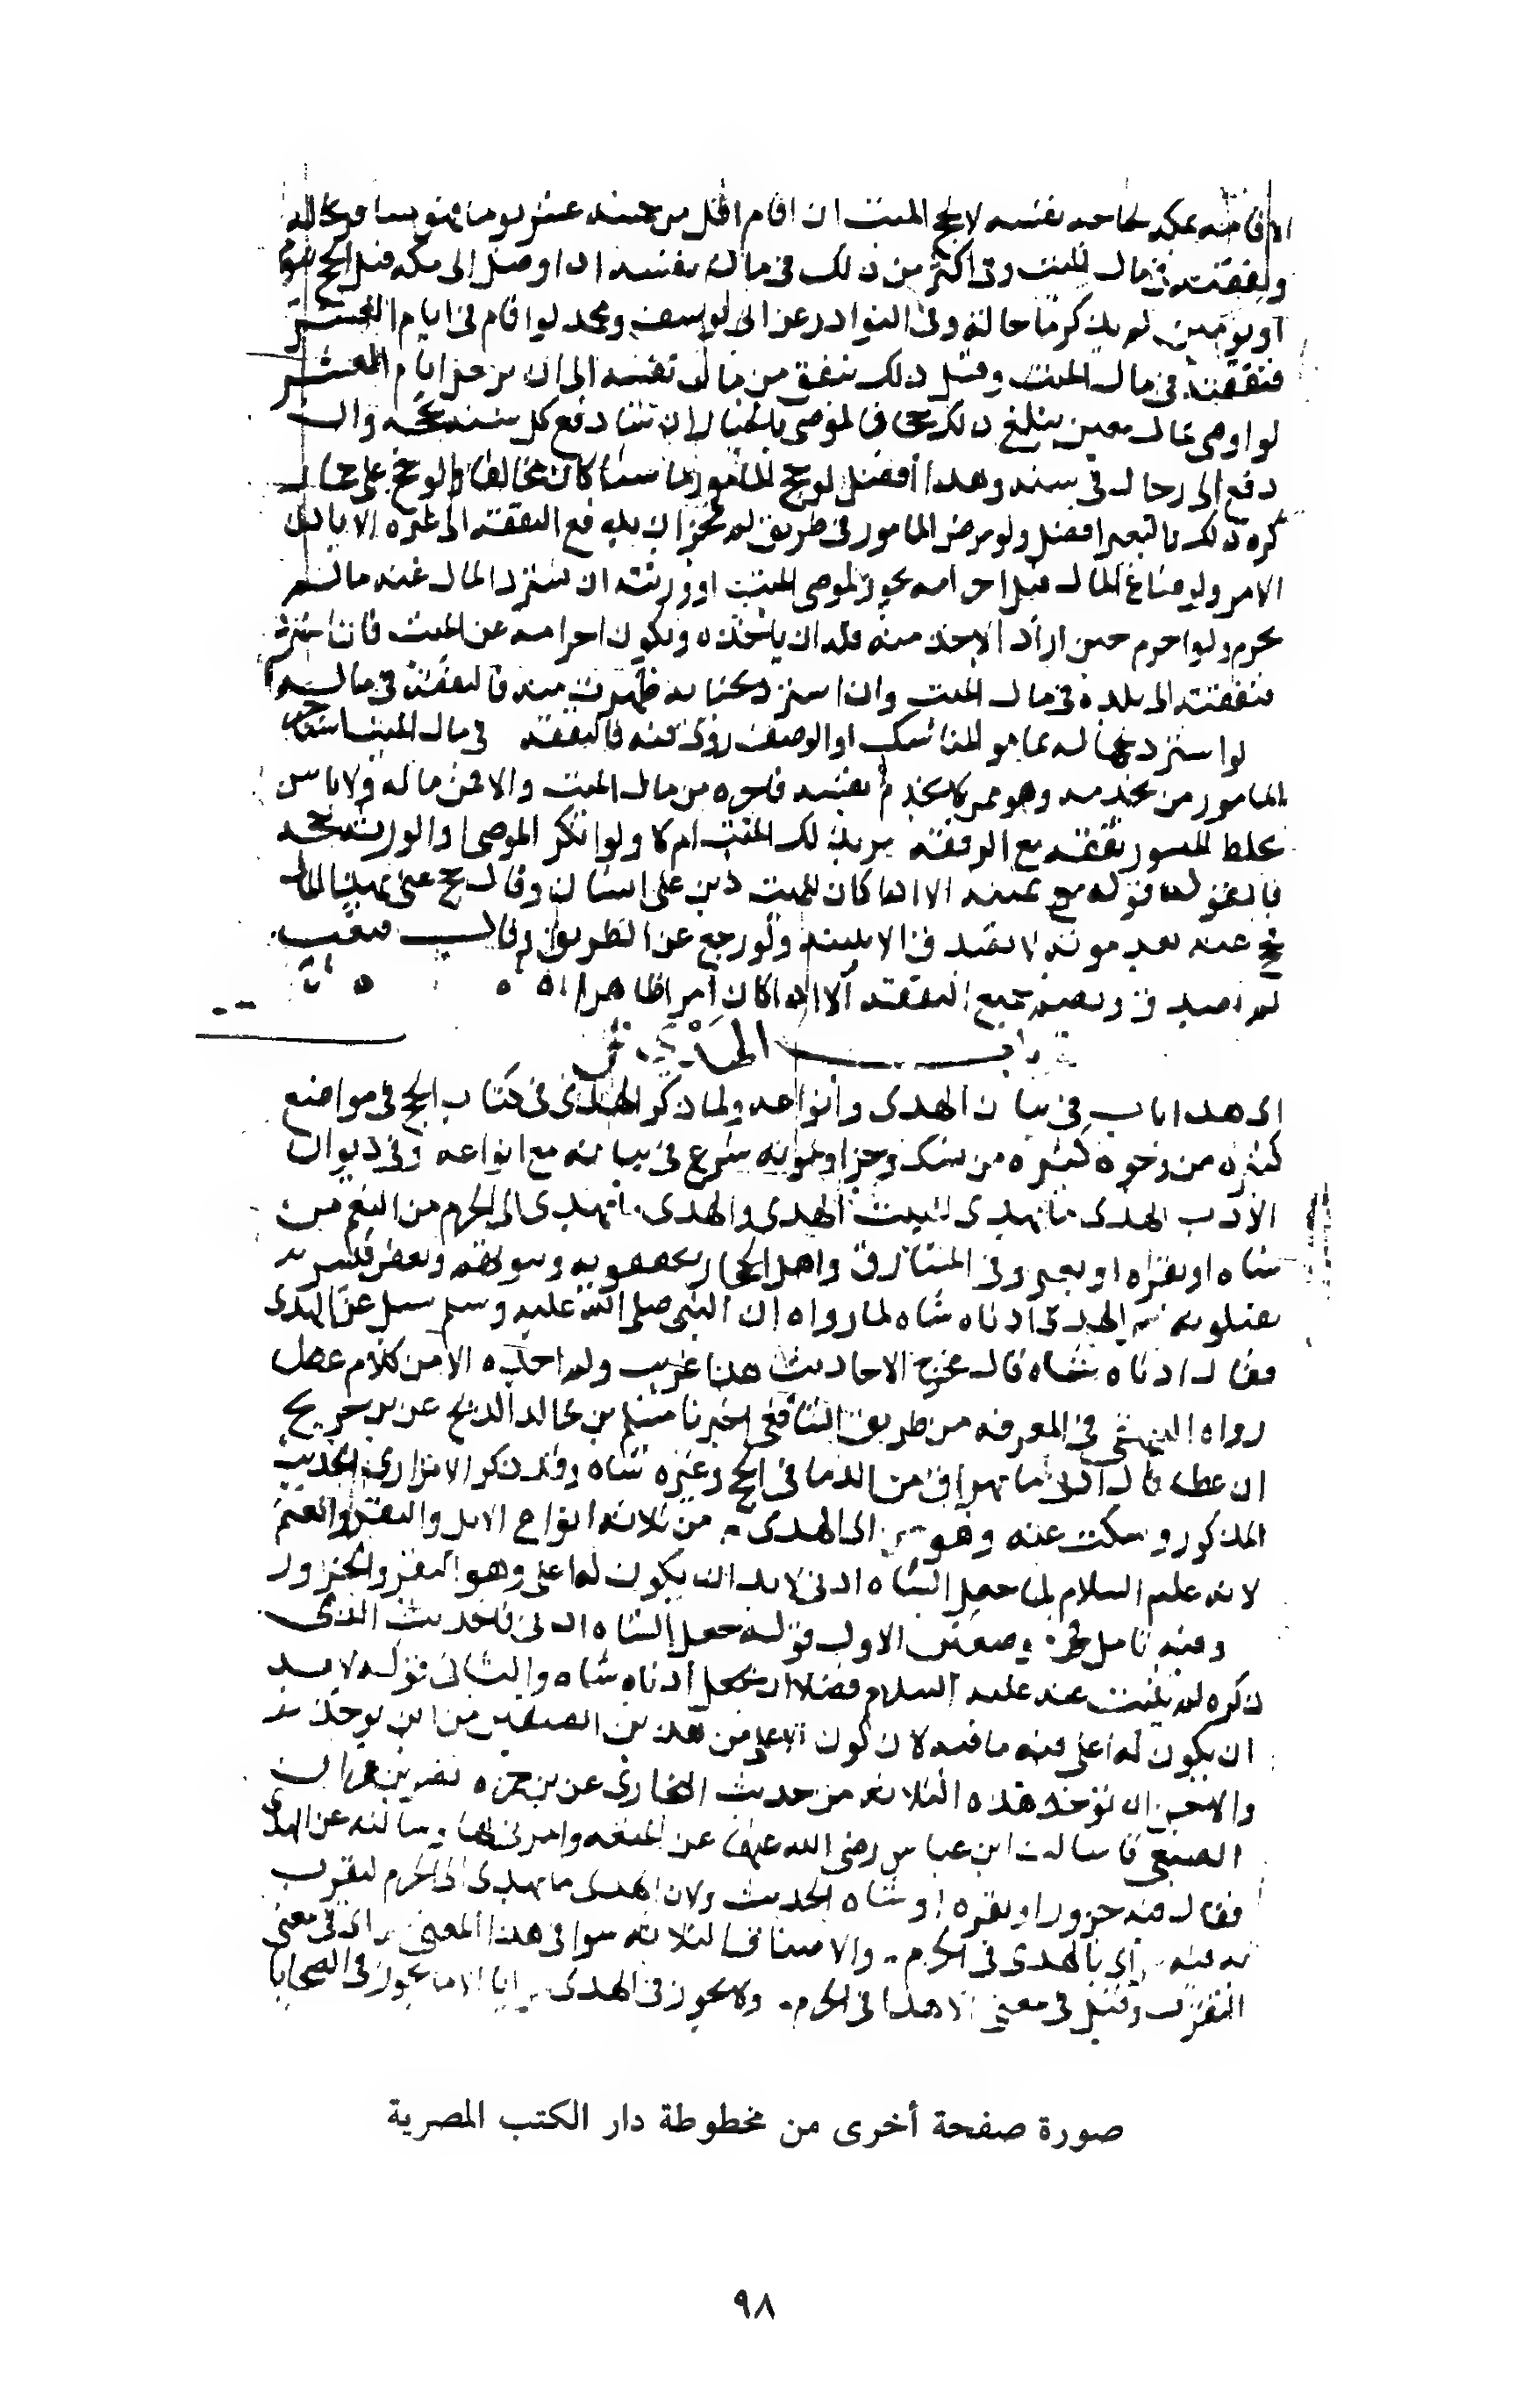 الاقامة بمكة لحاجة نفسه لا لحج الميت ان اقام اقل من خمسة عشر يوما فهو مسافر على حاله
ونفقته في مال الميت وفي اكثر من ذلك في مال نفسه اذا وصل الى مكة قبل الحج بيوم
او يومين لم يذكر ما حاله وفي النوادر عن ابي يوسف ومحمد لو اقام في ايام العشر
فنفقته في مال الميت وقبل ذلك ينفق من مال نفسه الى ان يدخل ايام العشر
لو اوصى بمال معين يبلغ ذلك فالوصي بالخيار ان شا دفع كل سنة حجة وان
دفع الى رجال في سنة وهذا افضل لو حج المامور ماشيا كان مخالفا ولو حج على حمار
كره ذلك فالبعير افضل ولو مرض المامور في طريق لم يجز ان يدفع النفقة الى غيره الا باذن
الامر ولو ضاع المال قبل احرامه يجوز لوصي الميت او ورثته ان يسترد المال عنه ما لم
يحرم ولو احرم حين اراد الاخذ منه فله ان ياخذه ويكون احرامه عن الميت فان استرد
فنفقته الى بلده في مال الميت وان استرد بخيانة ظهرت منه فالنفقة في ماله
لو استرد لجهاله بما هو المناسك فالنفقة في مال الميت
المامور من يخدمه وهو ممن لا يخدم نفسه فاجره من مال الميت والا فمن ماله ولا باس
بخلط المامور نفقته مع الرفقة بذلك الميت ام لا ولو انكر الوصي او الوارث حجه
فالقول له قوله مع يمينه الا اذا كان للميت دين على انسان وقال حج عني بهذا المال
فحج عنه بعد موته لا يصدق الا ببينة ولو رجع عن الطريق وقال منعت
لم يصدق ويضمن جميع النفقة الا اذا كان امرا ظاهرا
باب الهدي
اى هذا باب في بيان الهدى وانواعه ولما ذكر الهدى في كتاب الحج في مواضع
كثيرة من وجوه كثيرة من نسك وجزا ومونة شرع في بيانه مع انواعه وفي ديوان
الادب الهدى ما يهدى للبيت الهدى والهدى ما يهدى الى الحرم من النعم من
شاه او بقرة او بعير وفي المشارق واهل الحجاز يخففونه
يثقلونه م الهدى ادناه شاه لما رواه ان النبى صلى الله عليه وسلم سيل عن الهدى
فقال ادناه شاه قال مخرج الاحاديث هذا غريب ولم اجده الا من كلام عطا
رواه البيهقى في المعرفة من طريق الشافعى اخبرنا مسلم بن خالد الزنجى عن بن جريج
ان عطا قال ادنى ما يهراق من الدما في الحج وغيره شاه وقد ذكر الاترازى الحديث
المذكور وسكت عنه وهو اى الهدى من ثلاثة انواع الابل والبقر والغنم
لانه عليه السلام لما جعل الشاه ادنى لابد ان يكون له اعلى وهو البقر والجزور
وفيه تامل الاول قوله جعل الشاه ادنى فالحديث الذى
ذكره لم يثبت عنه عليه السلام فضلا ان يجعل ادناه شاه والثانى قوله لا بد
ان يكون له اعلى فيه ما فيه لان كون الاعلى من هذين الصنفين من اين يوخذ
والاحسن ان توخذ هذه الثلاثة من حديث البخارى عن بن جمرة نصر بن عمران
الضبعى قا سالت ابن عباس رضى الله عنهما عن المتعة وامرنى بها وسالته عن الهدى
فقال فيه جزور او بقرة او شاه الحديث ولان الهدى ما يهدى الى الحرم ليتقرب
به فيه اى بالهدى في الحرم والاصناف الثلاثة سوا في هذا المعنى اى في معنى
التقرب وقيل في معنى الاهدا في الحرم ولا يجوز في الهدايا الا ما يجوز في الضحايا
صورة صفحة أخرى من مخطوطة دار الكتب المصرية
٩٨